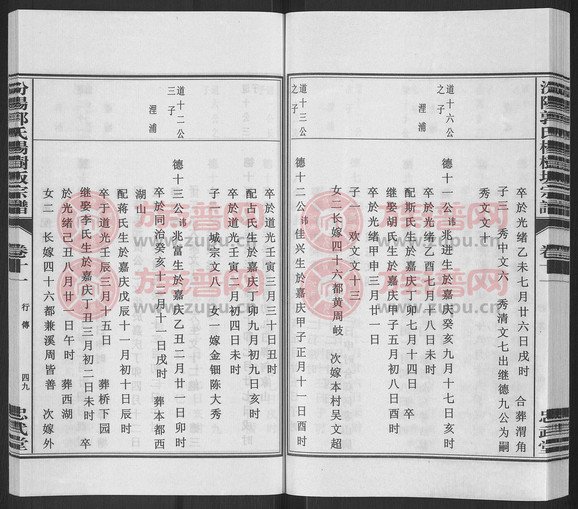 汾陽郭氏楊樹坂宗譜
卒於光緒乙未七月廿六日戌時 合葬渭角
子三 秀中文六 秀清文七出继德九公为嗣
秀文文十
道十六公之子
浬浦
德十一公讳兆进生於嘉庆癸亥九月十七日亥时
卒於光绪乙酉七月十八日未时
配斯氏生於嘉庆丁卯七月十四日 卒
继娶胡氏生於嘉庆戊辰五月初八日酉时
卒於光绪甲申三月廿二日
子一 欢文文十三
女二 长嫁四十六都黄周岐 次嫁本村吴文超
道十三公之子
德十二公讳佳兴生於嘉庆甲子正月十一日酉时
卒於道光壬寅三月三十日丑时
配古氏生於嘉庆丁卯九月初九日亥时
卒於道光壬寅三月初四日未时
子一 城宗文八 女一嫁金钿陈大秀
道十二公三子
浬浦
德十三公讳兆富生於嘉庆乙丑二月廿一日卯时
卒於同治癸亥十二月十一日戌时 葬本都西
湖山
配蒋氏生於嘉庆戊辰十一月初十日辰时
卒于道光壬辰三月十五日 葬桥下园
继娶李氏生於嘉庆丁丑三月初二日未时 卒
於光绪己丑八月廿二日午时 葬西湖
女二 长嫁四十六都兼溪周皆善 次嫁外
汾陽郭氏楊樹坂宗譜
卷十二
行傳
四九
忠武堂